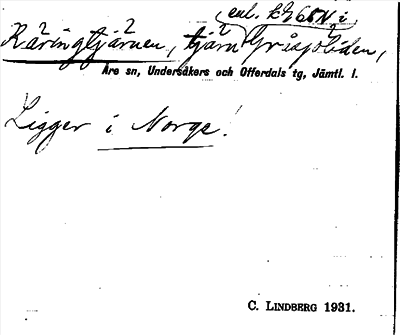 enl. k 65 N i
Käringtjärnen, tjärn Grisjöliden,
Åre sn, Undersåkers och Offerdals tg, Jämtl. l.
Ligger i Norge!
C. LINDBERG 1931.